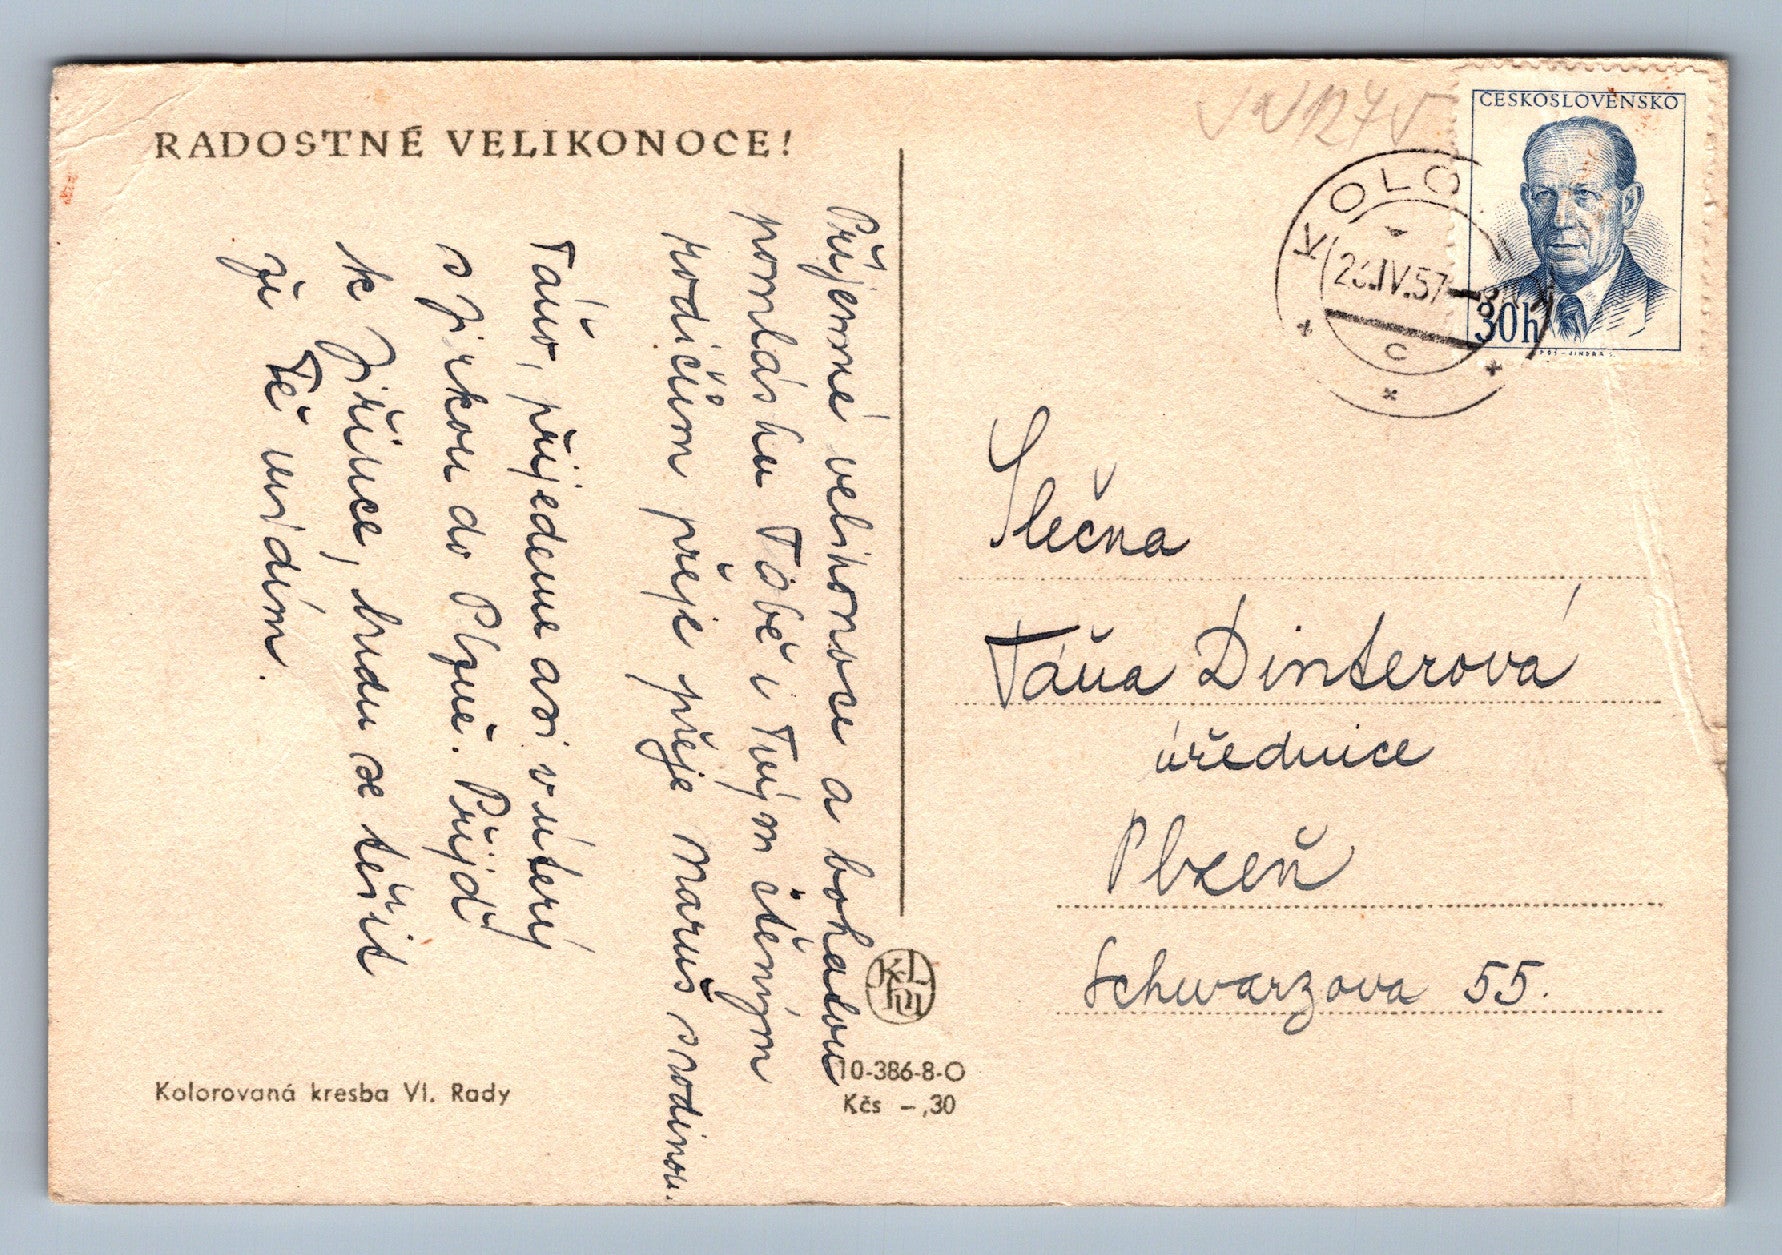 RADOSTNÉ VELIKONOCE!
Příjemné velikonoce a bohatou
pomlásku Tobě i Tvým ctěným
rodičům přeje přeje Maruš s rodinou.
Táňo, přijedeme asi v úterý
s Jirkou do Plzně. Přijď
k Jiřince, budu se těšit
že Tě uvidím.
Kolorovaná kresba Vl. Rady
KLHU
10-386-8-O
Kčs –,30
ČESKOSLOVENSKO
30h
KOLÍN
26.IV.57-8
c
Slečna
Táňa Dinterová
úřednice
Plzeň
Schwarzova 55.